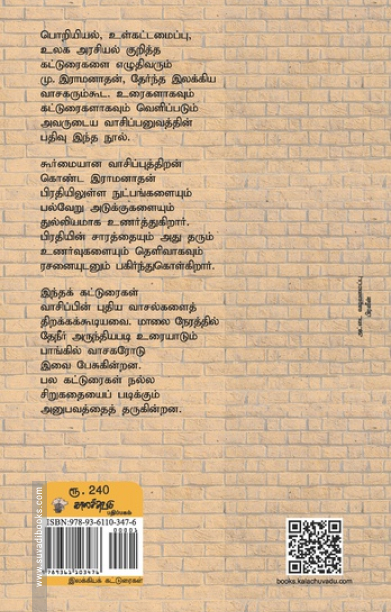 பொறியியல், உள்கட்டமைப்பு,
உலக அரசியல் குறித்த
கட்டுரைகளை எழுதிவரும்
மு. இராமனாதன், தேர்ந்த இலக்கிய
வாசகரும்கூட. உரைகளாகவும்
கட்டுரைகளாகவும் வெளிப்படும்
அவருடைய வாசிப்பனுவத்தின்
பதிவு இந்த நூல்.
கூர்மையான வாசிப்புத்திறன்
கொண்ட இராமனாதன்
பிரதியிலுள்ள நுட்பங்களையும்
பல்வேறு அடுக்குகளையும்
துல்லியமாக உணர்த்துகிறார்.
பிரதியின் சாரத்தையும் அது தரும்
உணர்வுகளையும் தெளிவாகவும்
ரசனையுடனும் பகிர்ந்துகொள்கிறார்.
இந்தக் கட்டுரைகள்
வாசிப்பின் புதிய வாசல்களைத்
திறக்கக்கூடியவை. மாலை நேரத்தில்
தேநீர் அருந்தியபடி உரையாடும்
பாங்கில் வாசகரோடு
இவை பேசுகின்றன.
பல கட்டுரைகள் நல்ல
சிறுகதையைப் படிக்கும்
அனுபவத்தைத் தருகின்றன.
ரூ. 240
காலச்சுவடு
பதிப்பகம்
ISBN:978-93-6110-347-6
00001
9789361103476
இலக்கியக் கட்டுரைகள்
www.suvadibooks.com
books.kalachuvadu.com